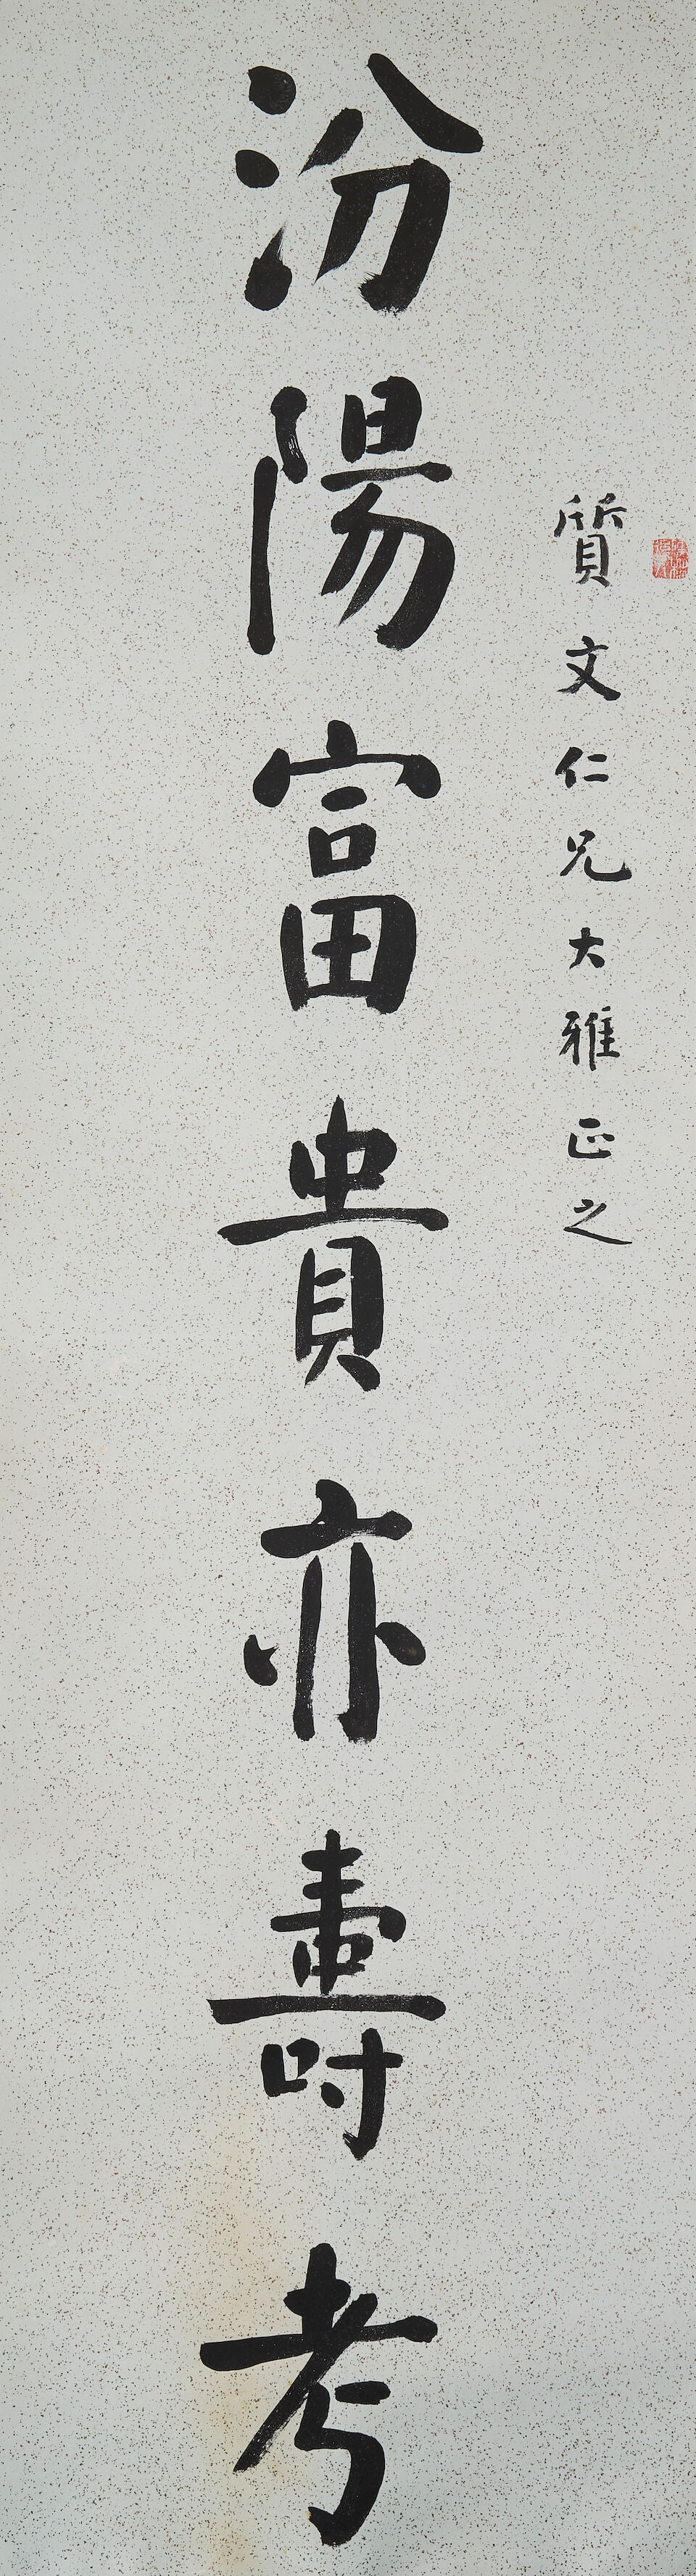 質文仁兄大雅正之
汾陽富貴亦壽考